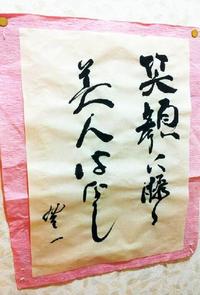 笑顔に勝る
美人はなし